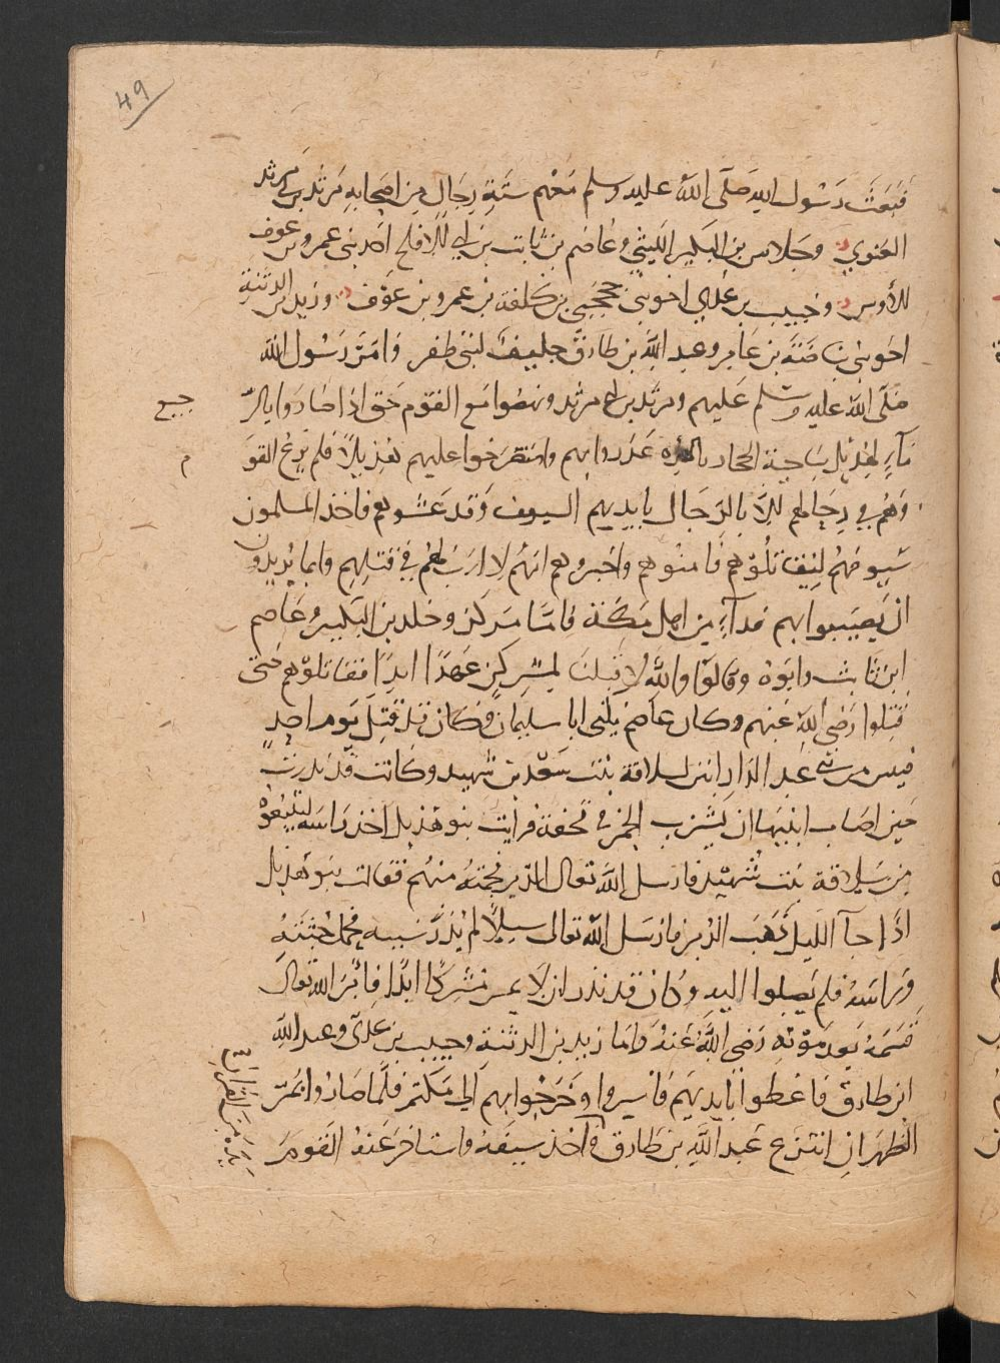 49
فَبَعَثَ رَسُول اللهِ صَلَّى اللهُ عليه وسلم مَعَهم ستَةِ رِجَالٍ مِن اصْحَابِهِ مَرْثَد بن مرثد
الغنوي وخلاس بن البكير الليثي وعَاصِم بن ثابت بن الاقلح اخو بنى عمرو بن عوف
الأوس وخبيب بن عدي اخو بنى جحجبي بن كلفة بن عمرو بن عَوف وزيد بن الدثنةِ
اخو بنى بياضَةَ بن عَامِر وعبد اللَّهِ بن طارق حليف لبنى ظفر وَامَّرَ رَسُول اللهِ
صَلَّى اللهُ عليه وسلم عَليهم مرثد بن مرثد ونهضوا مَع القوم حَتى اذا صَارَوا بالرّ
جيع
مآءٍ لهذيل بنَاحِية الحجاز غَدَروا بهم واستصرَخوا عليهم هذيلاً فلم يَرع القوَ
م
وَهُم في رِحَالهم الاَّ بالرّجَال بأيديهم السيوف وَقد غَشوهم فاخذ المسلمون
سُيوفهُم ليقَاتلُوهم فَامنُوهم واخبروهم انهُم لا ارَبَ لهُم في قتلِهِم وانما يُريدون
انْ يُصِيبوا بهم فدآءٍ مِن اهل مَكَّة فامَّا مَرثد وخلد بن البكير وعَاصم
ابن ثَابت وابَوْه وقالوَا واللَّهِ لا قبلنَا لمشركٍ عَهدًا ابدًا فقاتلوهم حَتى
قُتِلوا رَضى اللهِ عَنهم وكان عَاصم يكنى ابا سليمان وكان قد قَتَلَ يَوم احدٍ
عبد الدَارِ ابني لسلافة بنت سَعْد بن شهيد وكانت قد نذرت
حين اصَاب ابنَيهَا ان يَشرب الخمر في قحفهَ فرأيت بنو هذيل اخذ رَاسَه ليَبيعُوهُ
مِن سَلافة بنت شُهَيد فارسل اللَّهَ تعالى الدّبر فحمتهُ منهُم فقالت بَنو هُذيل
اذَا جآ الليل ذَهَبَ الدُّبر فارْسَل اللهُ تعالى سيلاً لم يُدْرَ سَببه فحمل جُثتهُ
وَرَاسَهُ فلم يَصِلوا اليهِ وَكان قد نذر ان لاَ يمسَ مشركًا ابدًا فابَرَ اللهُ تعالى
قَسَمَهُ بَعد مَوْتهِ رَضي اللهَّ عَنهُ وَامَا زيد بن الدثنة وخبيب بن عَدىّ وعبد اللَّهِ
ابن طارق فاعطوا بأيديَهم فاسروا وخَرَجُوا بهم الى مَكة فلمَّا صَارُوا بمرّ
الظهرَانِ انتزع عَبد اللَّهِ بن طارق واخذ سيفهُ واستاخر عَنهُ القومَ